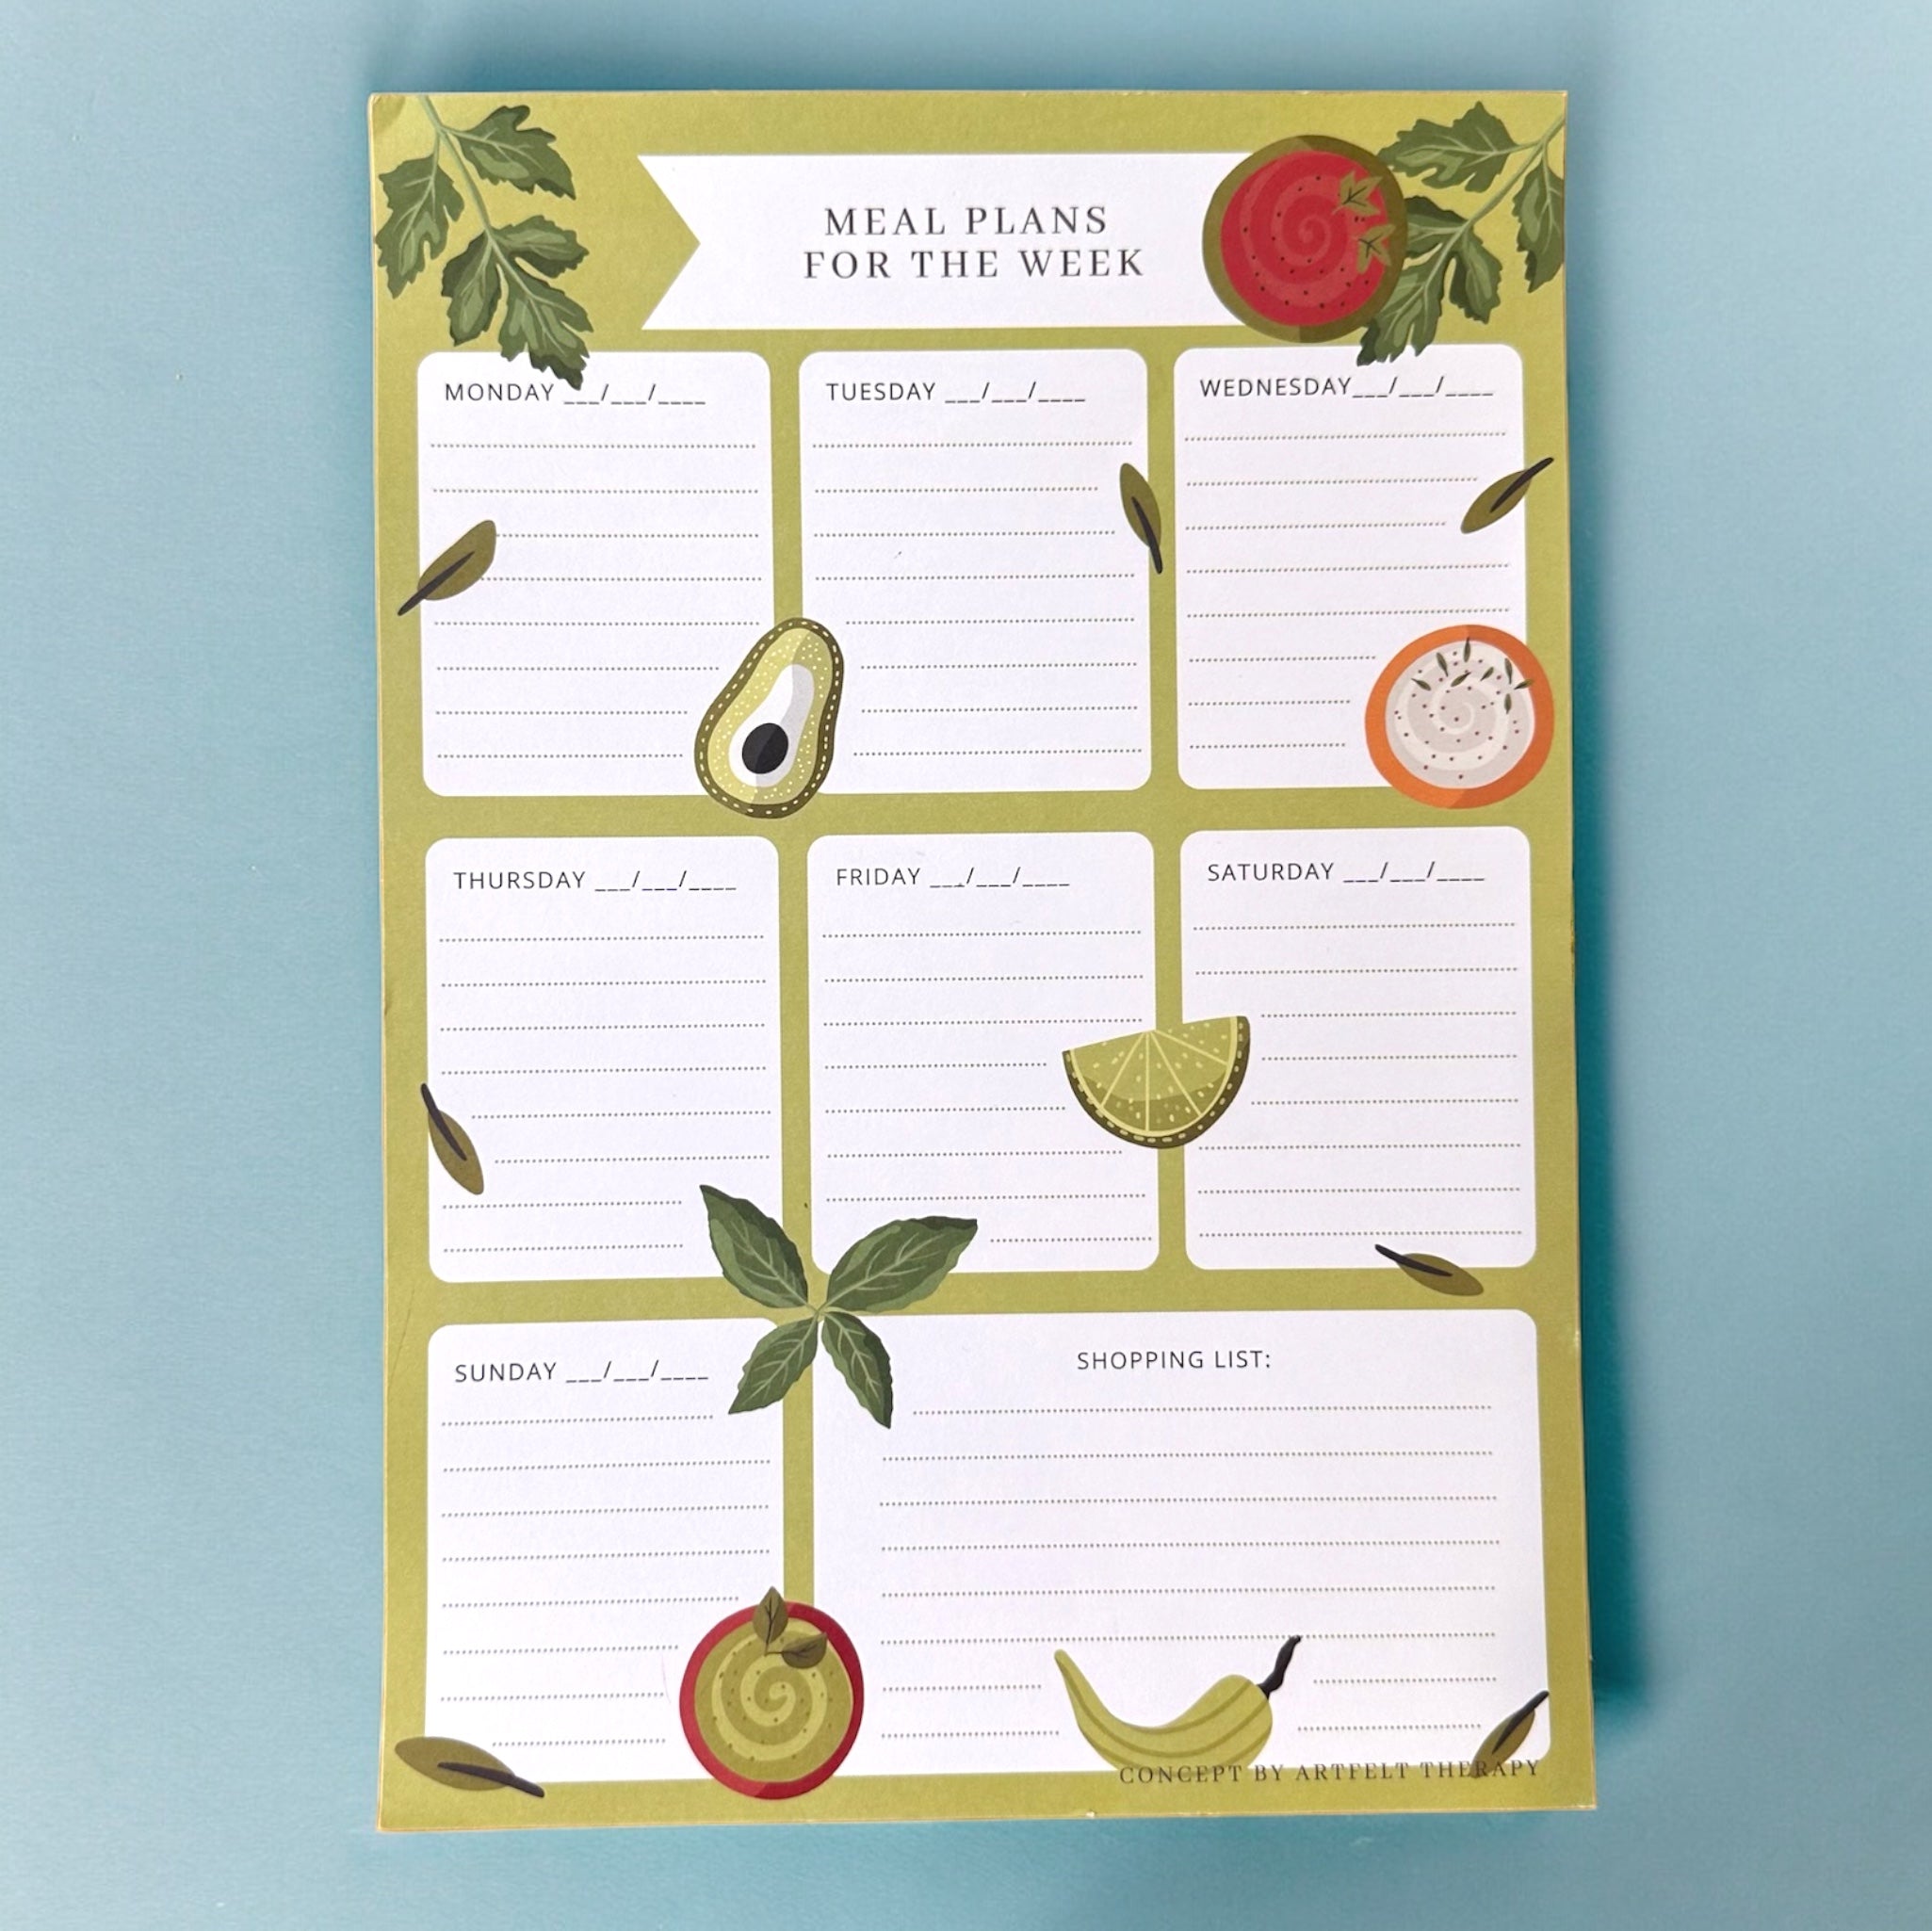 MEAL PLANS
FOR THE WEEK
MONDAY ___/___/____
TUESDAY ___/___/____
WEDNESDAY___/___/____
THURSDAY ___/___/____
FRIDAY ___/___/____
SATURDAY ___/___/____
SUNDAY ___/___/____
SHOPPING LIST:
CONCEPT BY ARTFELT THERAPY